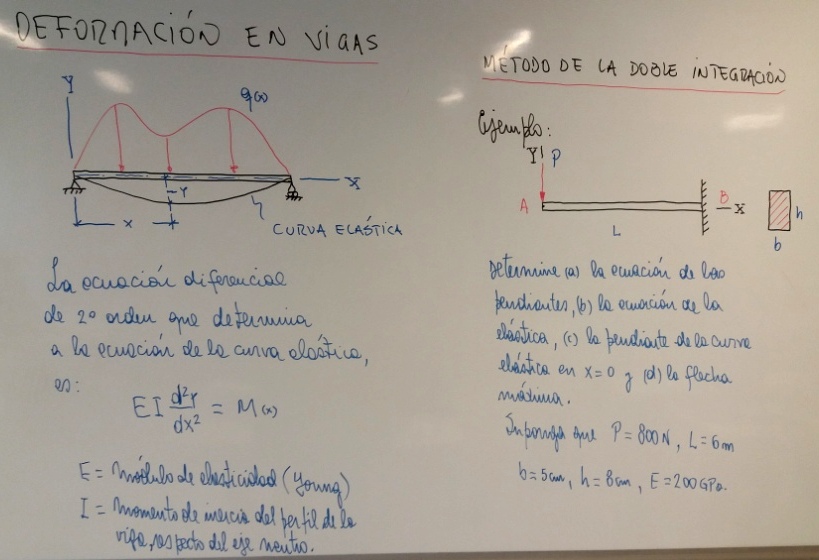 DEFORMACIÓN EN VIGAS
Y
q(x)
X
-Y
x
CURVA ELÁSTICA
La ecuación diferencial
de 2º orden que determina
a la ecuación de la curva elástica,
es:
EI d²Y/dx² = M(x)
E = módulo de elasticidad (Young)
I = momento de inercia del perfil de la
viga, respecto del eje neutro.
MÉTODO DE LA DOBLE INTEGRACIÓN
Ejemplo:
Y P
A B X h
L b
Determine (a) la ecuación de las
pendientes, (b) la ecuación de la
elástica, (c) la pendiente de la curva
elástica en x=0 y (d) la flecha
máxima.
Suponga que P = 800 N, L = 6 m
b = 5 cm, h = 8 cm, E = 200 GPa.